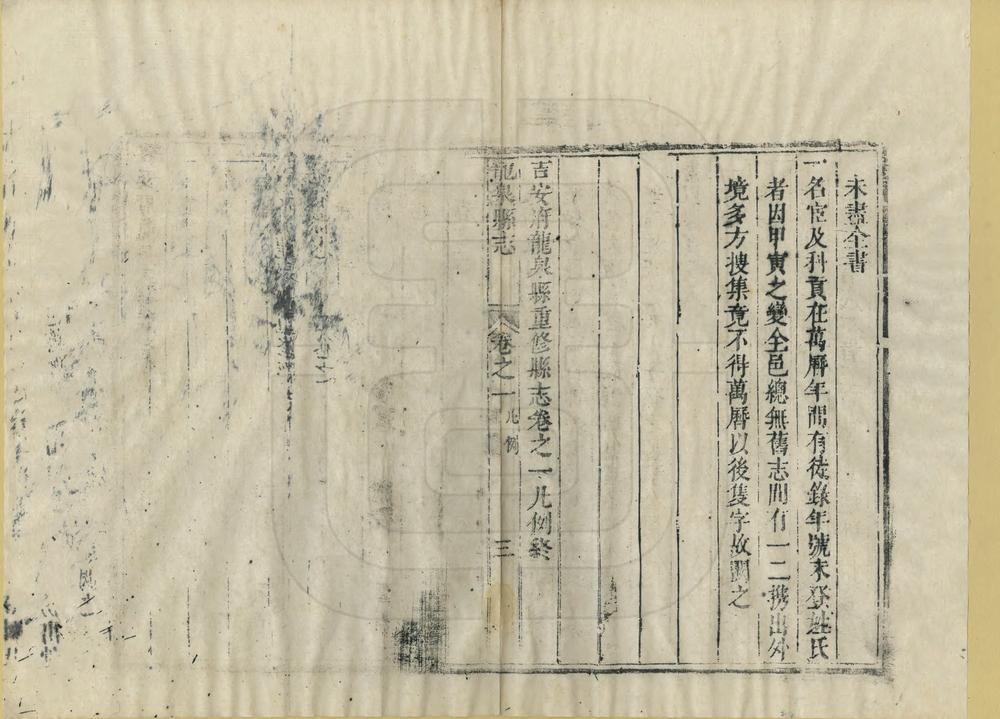 未盡全書
一名宦及科貢在萬曆年間有徒錄年號未登姓氏
者因甲寅之變全邑總無舊志間有一二携出外
境多方搜集竟不得萬曆以後隻字故闕之
吉安府龍泉縣重修縣志卷之一凡例終
龍泉縣志
卷之一
凡例
三